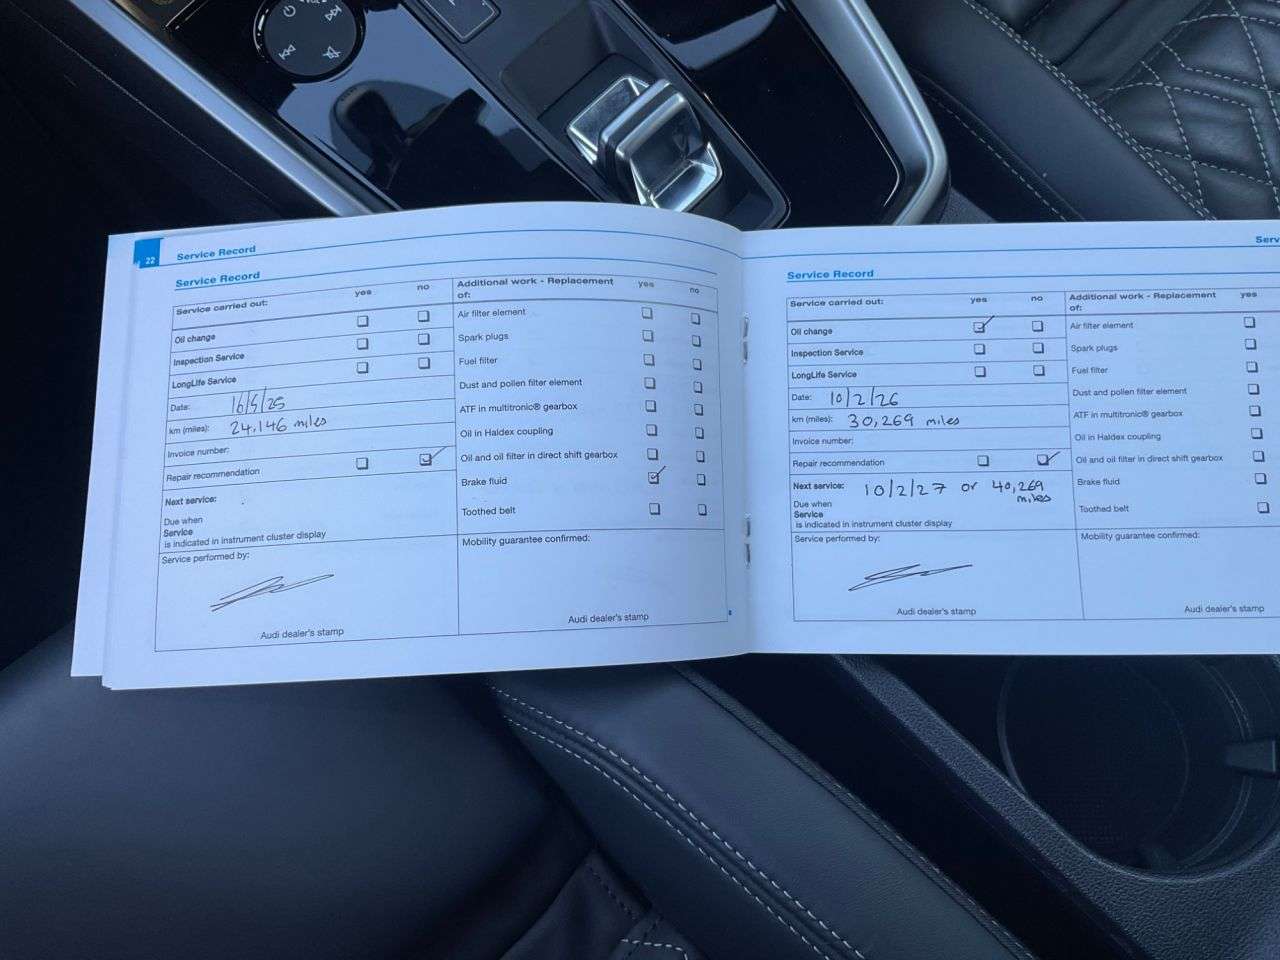 22
Service Record
Service Record
Service carried out:
yes
no
Oil change
Inspection Service
LongLife Service
Date: 16/5/25
km (miles): 24,146 miles
Invoice number:
Repair recommendation
Next service:
Due when
Service
is indicated in instrument cluster display
Service performed by:
Audi dealer's stamp
Additional work - Replacement
of:
yes
no
Air filter element
Spark plugs
Fuel filter
Dust and pollen filter element
ATF in multitronic® gearbox
Oil in Haldex coupling
Oil and oil filter in direct shift gearbox
Brake fluid
Toothed belt
Mobility guarantee confirmed:
Audi dealer's stamp
Serv
Service Record
Service carried out:
yes
no
Oil change
Inspection Service
LongLife Service
Date: 10/2/26
km (miles): 30,269 miles
Invoice number:
Repair recommendation
Next service: 10/2/27 or 40,269
miles
Due when
Service
is indicated in instrument cluster display
Service performed by:
Audi dealer's stamp
Additional work - Replacement
of:
yes
Air filter element
Spark plugs
Fuel filter
Dust and pollen filter element
ATF in multitronic® gearbox
Oil in Haldex coupling
Oil and oil filter in direct shift gearbox
Brake fluid
Toothed belt
Mobility guarantee confirmed:
Audi dealer's stamp